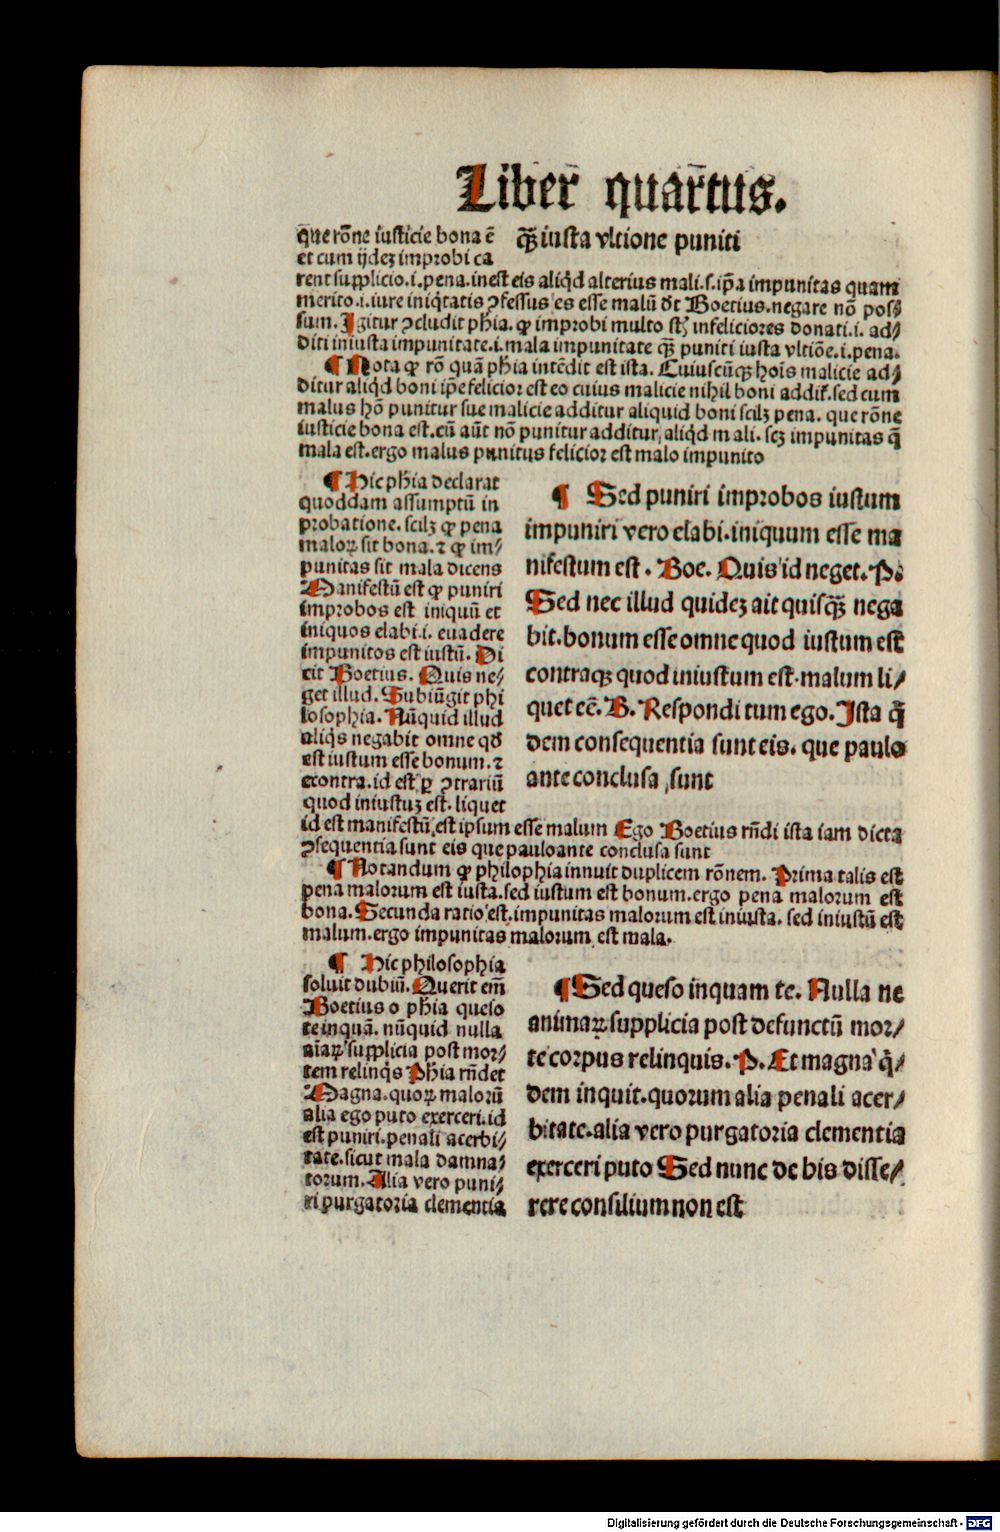 Liber quartus.
que rōne iusticie bona ē
et cum ijdeꝫ improbi ca
qꝫ̄ iusta vltione puniti
rent supplicio.i.pena.inest eis aliq̇d alterius mali.s.ip̄a impunitas quam
merito.i.iure iniq̇tatis ꝯfessus es esse malū ðt Boetius.negare nō pos⸗
sum.Igitur ꝯcludit ph̄ia. ꝙ improbi multo st̄ infeliciores donati.i. ad⸗
diti iniusta impunitate.i.mala impunitate qꝫ̄ puniti iusta vltiōe.i.pena.
¶ Nota ꝙ rō quā ph̄ia intēdit est ista. Cuiuscūqꝫ hoīs malicie ad⸗
ditur aliq̇d boni ip̄e felicior est eo cuius malicie nihil boni addit᷑.sed cum
malus hō punitur sue malicie additur aliquid boni scilꝫ pena. que rōne
iusticie bona est.cū aūt nō punitur additur aliq̇d mali. scꝫ impunitas q̄
mala est.ergo malus punitus felicior est malo impunito
¶ Hic ph̄ia declarat
quoddam assumptū in
probatione.scilꝫ ꝙ pena
maloꝝ sit bona.⁊ ꝙ im⸗
punitas sit mala dicens
Manifestū est ꝙ puniri
improbos est iniquū et
iniquos elabi.i. euadere
impunitos est iustū. Di
cit Boetius. Quis ne⸗
get illud. Subiūgit phi
losophia. Nūquid illud
aliq̇s negabit omne qð
est iustum esse bonum.⁊
econtra.id est ꝑ ꝯtrariū
quod iniustuꝫ est.liquet
¶ Sed puniri improbos iustum
impuniri vero elabi.iniquum esse ma
nifestum est. Boe. Quis id neget.P.
Sed nec illud quideꝫ ait quisqꝫ̄ nega
bit.bonum esse omne quod iustum est
contraqꝫ quod iniustum est.malum li⸗
quet eē. B. Respondi tum ego. Ista q̄
dem consequentia sunt eis. que paulo
ante conclusa sunt
id est manifestū est ipsum esse malum Ego Boetius rn̄di ista iam dicta
ꝯsequentia sunt eis que pauloante conclusa sunt
¶ Notandum ꝙ philophia innuit duplicem rōnem. Prima talis est
pena malorum est iusta.sed iustum est bonum.ergo pena malorum est
bona.Secunda ratio est.impunitas malorum est iniusta. sed iniustū est
malum.ergo impunitas malorum est mala.
¶ Hic philosophia
soluit dubiū.Querit em̄
Boetius o ph̄ia queso
te inquā. nūquid nulla
aīaꝝ supplicia post mor⸗
tem relinq̇s Ph̄ia rn̄det
Magna.quoꝝ malorū
alia ego puto exerceri.id
est puniri.penali acerbi⸗
tate.sicut mala damna⸗
torum.Alia vero puni⸗
ri purgatoria clementia
¶ Sed queso inquam te. Nulla ne
animaꝝ supplicia post defunctū mor⸗
te corpus relinquis. P. Et magna q̇⸗
dem inquit.quorum alia penali acer⸗
bitate.alia vero purgatoria clementia
exerceri puto Sed nunc de his disse⸗
rere consilium non est
Digitalisierung gefördert durch die Deutsche Forschungsgemeinschaft - DFG